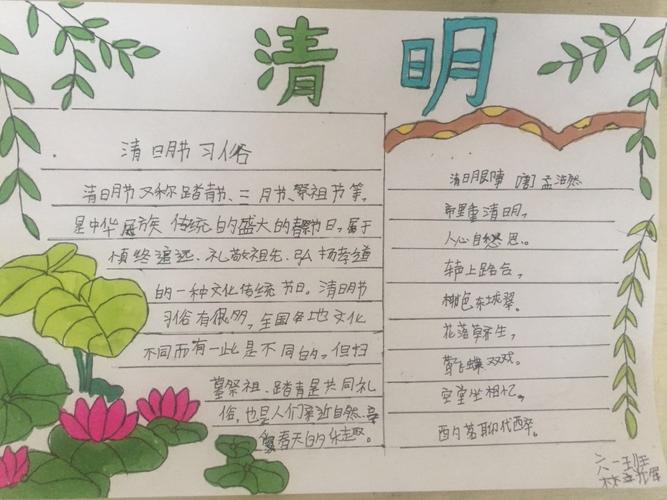 清明
清明节习俗
清明节又称踏青节、三月节、祭祖节等,
是中华民族传统的盛大的春节日,属于
慎终追远、礼敬祖先、弘扬孝道
的一种文化传统节日。清明节
习俗有很多,全国各地文化
不同而有一些是不同的,但扫
墓祭祖、踏青是共同礼
俗,也是人们亲近自然、享
春天的乐趣。
清明即事 [唐] 孟浩然
帝里重清明,
人心自愁思。
车声上路合,
柳色东城翠。
花落草齐生,
莺飞蝶双戏。
空堂坐相忆,
酌茗聊代醉。
六一班
林